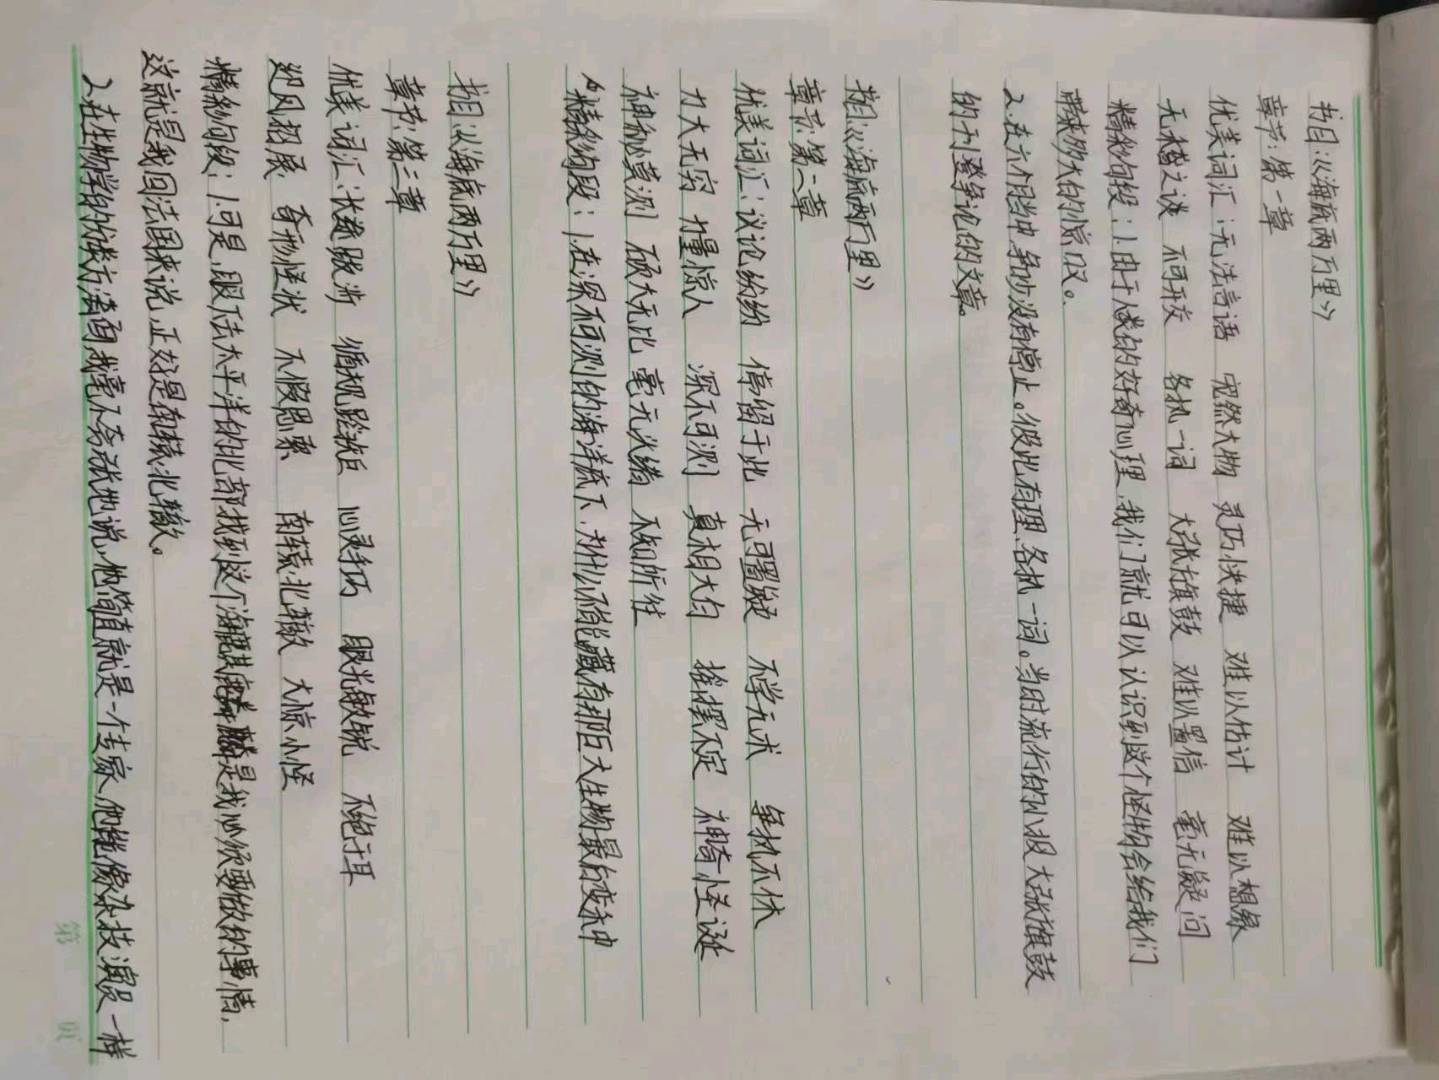 书目:《海底两万里》
章节:第一章
优美词汇:无法言语 宠然大物 灵巧快捷 难以估计 难以想象
无稽之谈 不可开交 各执一词 大张旗鼓 难以置信 毫无疑问
精彩句段:1.由于人类的好奇心理,我们就可以认识到这个怪物会给我们
带来多么大的惊叹。
2.在六个月当中,争吵没有停止。彼此有理、各执一词。当时流行的小报大张旗鼓
的刊登争论的文章。
书目:《海底两万里》
章节:第二章
优美词汇:议论纷纷 停留于此 无可置疑 不学无术 争执不休
力大无穷 力量惊人 深不可测 真相大白 摇摆不定 神奇怪诞
神秘莫测 硕大无比 毫无头绪 不知所往
精彩句段:1.在深不可测的海洋底下,为什么不能藏有那巨大生物最后变禾中
书目:《海底两万里》
章节:第三章
优美词汇: 循规蹈矩 心灵手巧 眼光敏锐 不绝于耳
迎风招展 奇形怪状 不假思索 南辕北辙 大惊小怪
精彩句段:1.可是,眼下去太平洋的北部找到这个海麒麟是我必须要做的事情,
这就是我回法国来说,正好是南辕北辙。
2.在生物学的分类方面,我毫不夸张地说,他简直就是一个专家,他能像杂技演员一样
第 页